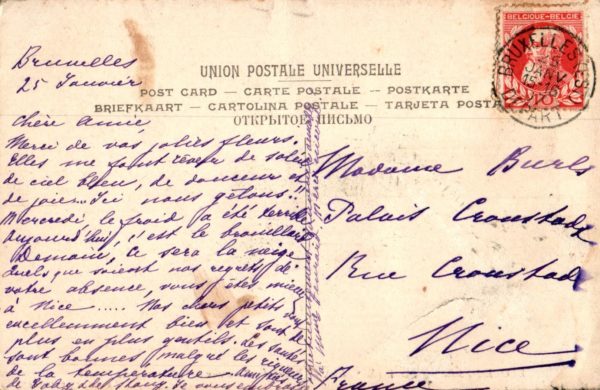 BELGIQUE-BELGIE
BRUXELLES
JANV
DÉPART
UNION POSTALE UNIVERSELLE
POST CARD — CARTE POSTALE — POSTKARTE
BRIEFKAART — CARTOLINA POSTALE — TARJETA POSTA
ОТКРЫТОЕ ПИСЬМО
Bruxelles
25 Janvier
Chère Amie,
Merci de vos jolies fleurs.
Elles me font rêver de soleil
de ciel bleu, de douceur et
de joie... Ici nous gelons!!
Mercredi le froid a été terrible
aujourd'hui, c'est le brouillard
Demain, ce sera la neige
quels que soient nos regrets de
votre absence, vous êtes mieux
à Nice ..... Nos chers petits vont
excellemment bien et sont de
plus en plus gentils. Les santés
sont bonnes malgré les rigueurs
de la température
de Je vous
Madame Burls
Palais Cronstadt
Rue Cronstadt
Nice
France